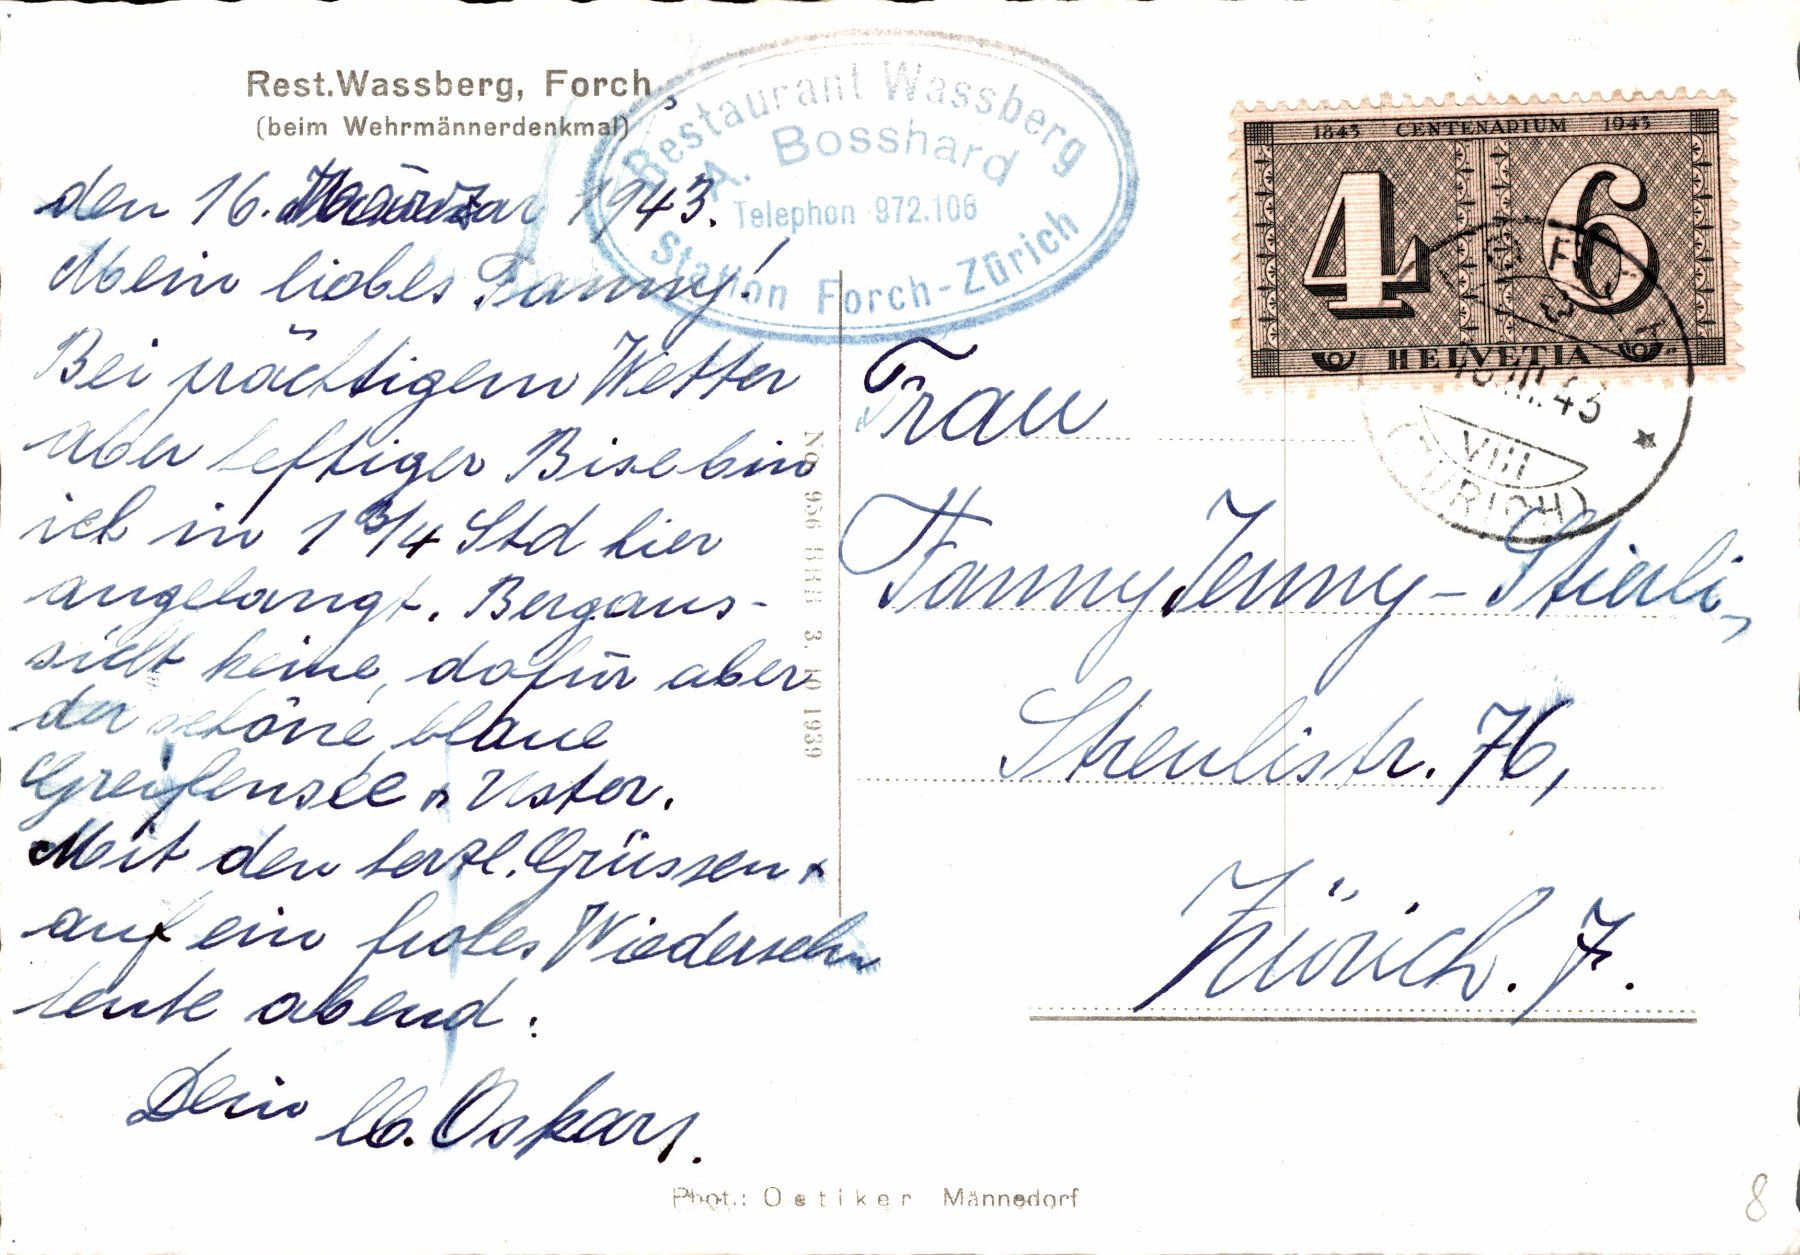 Rest.Wassberg, Forch
(beim Wehrmännerdenkmal)
Restaurant Wassberg
A. Bosshard
Telephon 972.106
Station Forch-Zürich
1843 CENTENARIUM 1943
4 6
HELVETIA
III.43
VIII
(ZÜRICH)
den 16. März 1943.
Mein liebes Fanny!
Bei prächtigem Wetter
aber heftiger Bise bin
ich in 1 3/4 Std hier
angelangt. Bergaus-
sicht keine, dafür aber
der schöne, blaue
Greifensee & Uster.
Mit den herzl. Grüssen &
auf ein frohes Wiedersehn
heute abend:
Dein lb. Oskar.
No 956 BRB 3. 10 1939
Frau
Fanny Jenny-Stierli,
Streulistr. 76,
Zürich. 7.
Phot.: Oetiker Männedorf
8